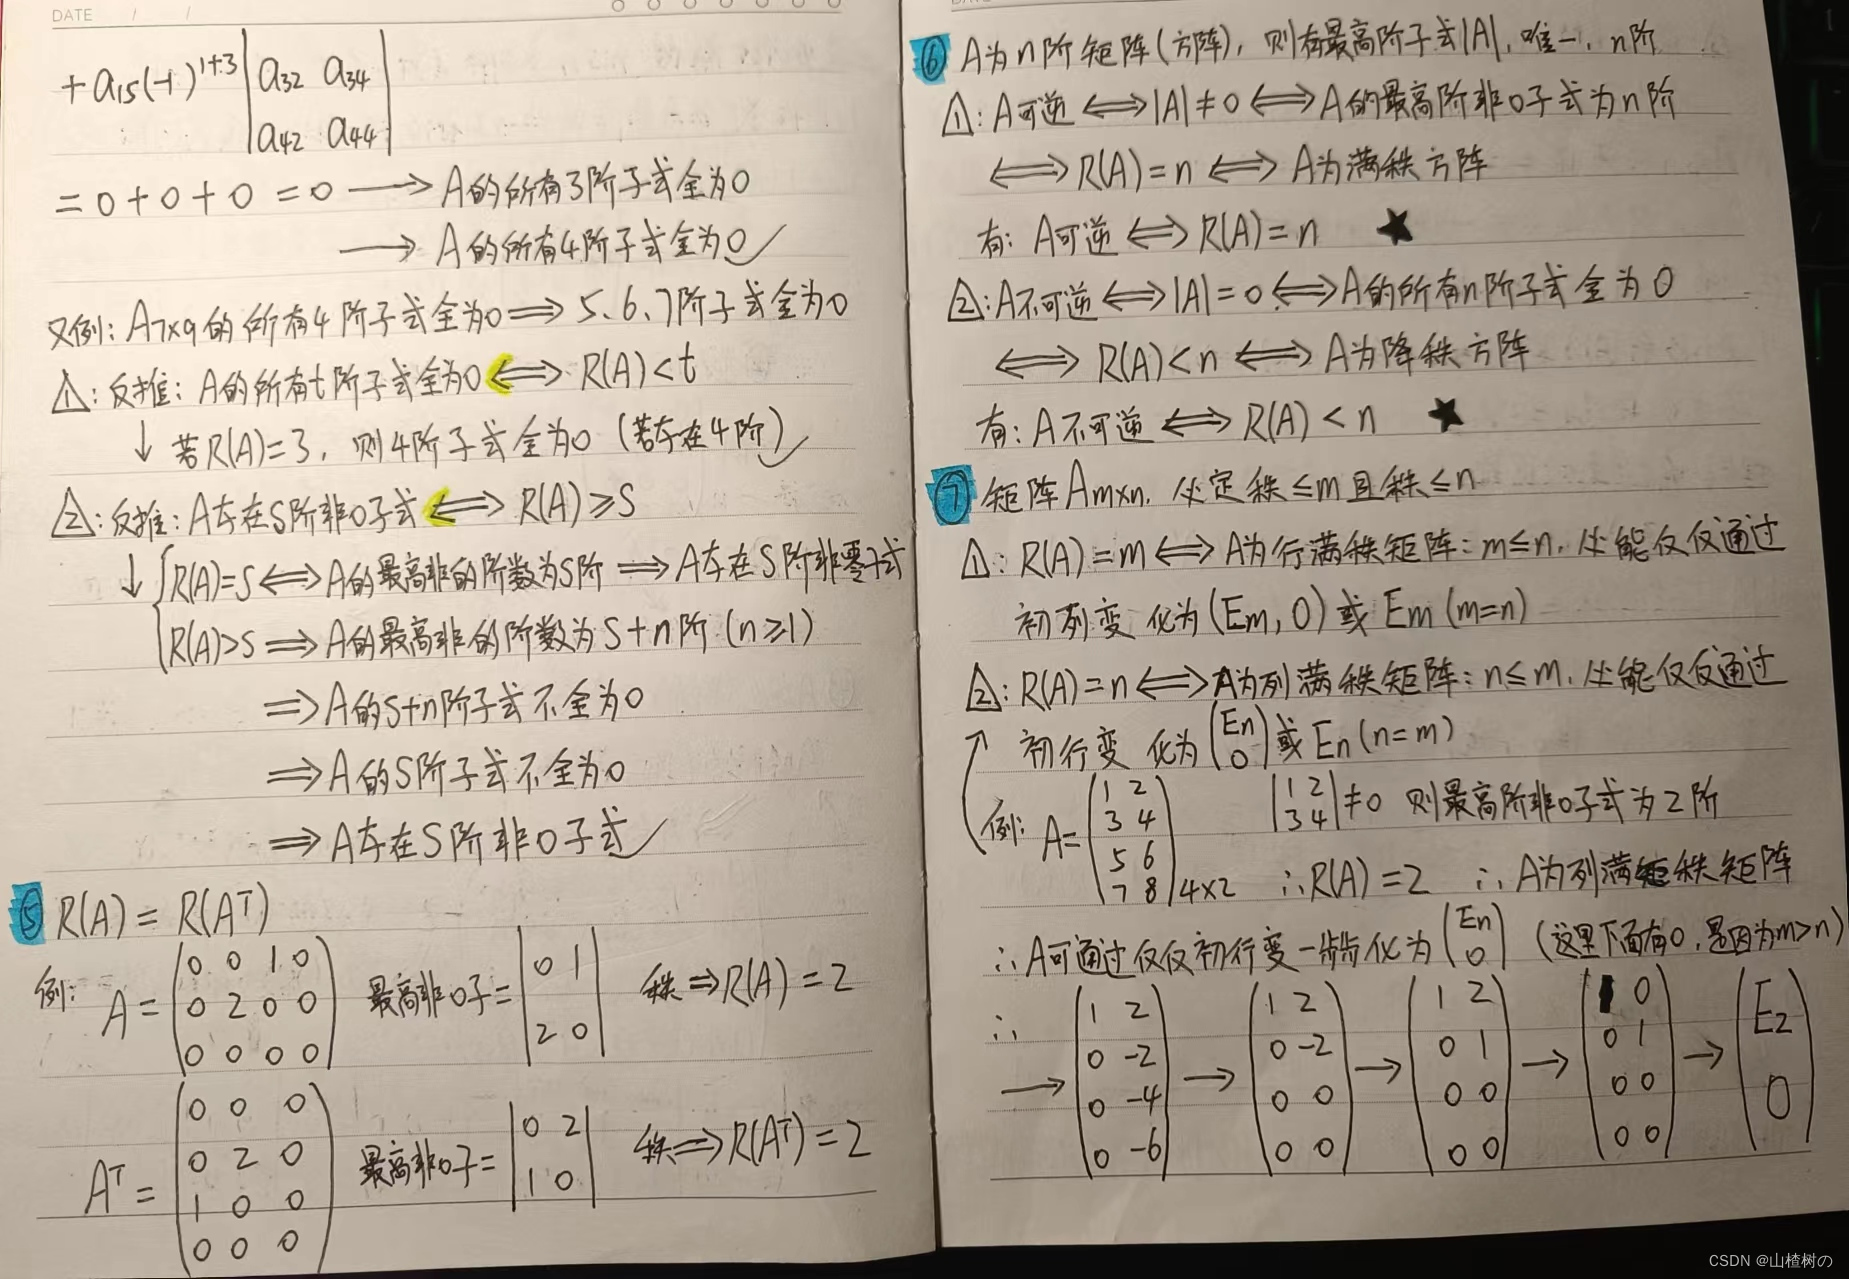 DATE / /
+ a₁₅(-1)¹⁺³ |a₃₂ a₃₄|
|a₄₂ a₄₄|
= 0 + 0 + 0 = 0 ⟶ A的所有3阶子式全为0
⟶ A的所有4阶子式全为0 ✓
又例: A₇ₓ₉的所有4阶子式全为0 ⟹ 5、6、7阶子式全为0
△1: 反推: A的所有t阶子式全为0 ⟺ R(A)<t
↓ 若R(A)=3, 则4阶子式全为0 (若存在4阶) ✓
△2: 反推: A存在S阶非0子式 ⟺ R(A)≥S
↓ { R(A)=S ⟺ A的最高非0的阶数为S阶 ⟹ A存在S阶非零子式
R(A)>S ⟹ A的最高非0的阶数为S+n阶 (n≥1)
⟹ A的S+n阶子式不全为0
⟹ A的S阶子式不全为0
⟹ A存在S阶非0子式 ✓
⑤ R(A) = R(Aᵀ)
例: A = (0 0 1 0
0 2 0 0
0 0 0 0) 最高非0子= |0 1
2 0| 秩⟹R(A)=2
Aᵀ = (0 0 0
0 2 0
1 0 0
0 0 0) 最高非0子= |0 2
1 0| 秩⟹R(Aᵀ)=2
DATE
⑥ A为n阶矩阵(方阵), 则有最高阶子式|A|, 唯一, n阶
△1: A可逆 ⟺ |A|≠0 ⟺ A的最高阶非0子式为n阶
⟺ R(A)=n ⟺ A为满秩方阵
有: A可逆 ⟺ R(A)=n ★
△2: A不可逆 ⟺ |A|=0 ⟺ A的所有n阶子式全为0
⟺ R(A)<n ⟺ A为降秩方阵
有: A不可逆 ⟺ R(A)<n ★
⑦ 矩阵Amxn, 必定秩≤m且秩≤n
△1: R(A)=m ⟺ A为行满秩矩阵: m≤n, 必能仅仅通过
初列变 化为(Em, 0)或Em (m=n)
△2: R(A)=n ⟺ A为列满秩矩阵: n≤m, 必能仅仅通过
初行变 化为(En
0)或En (n=m)
例: A= (1 2
3 4
5 6
7 8)4x2 |1 2
3 4|≠0 则最高阶非0子式为2阶
∴R(A)=2 ∴A为列满秩矩阵
∴A可通过仅仅初行变一步步化为(En
0) (这里下面有0,是因为m>n)
∴ → (1 2
0 -2
0 -4
0 -6) → (1 2
0 -2
0 0
0 0) → (1 2
0 1
0 0
0 0) → (1 0
0 1
0 0
0 0) → (E₂
0)
CSDN @山楂树の